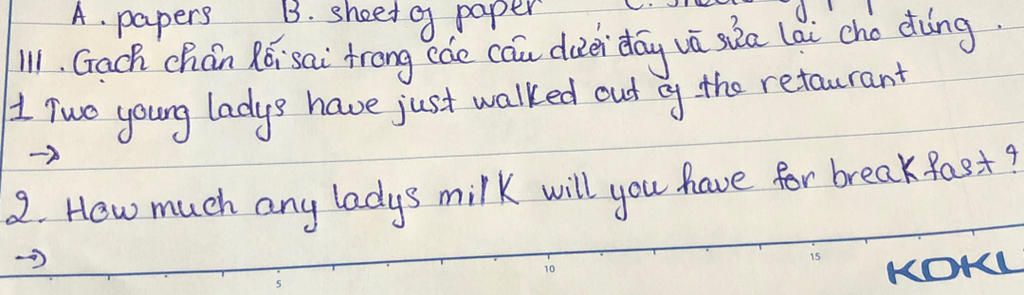 A. papers B. sheet of paper
III. Gạch chân lỗi sai trong các câu dưới đây và sửa lại cho đúng.
1 Two young ladys have just walked out of the retaurant
→
2. How much any ladys milk will you have for breakfast?
→
5 10 15
KOKU